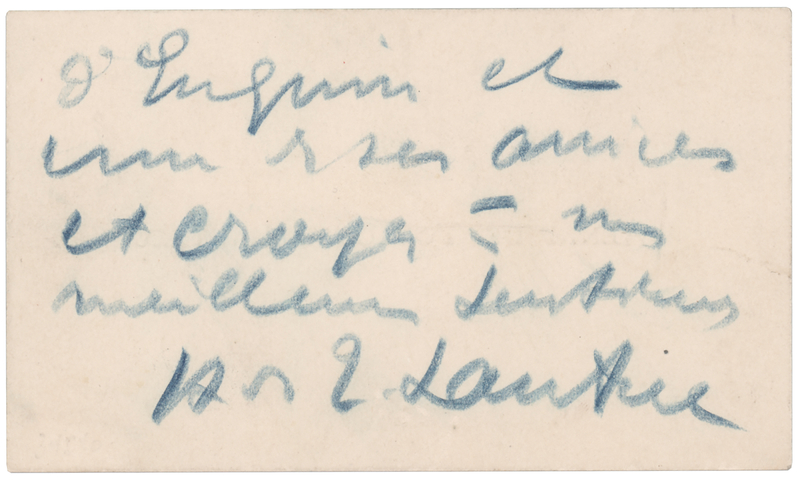 et
une de ses amies
et croyez à mes
meilleurs sentiments
H de T. Lautrec